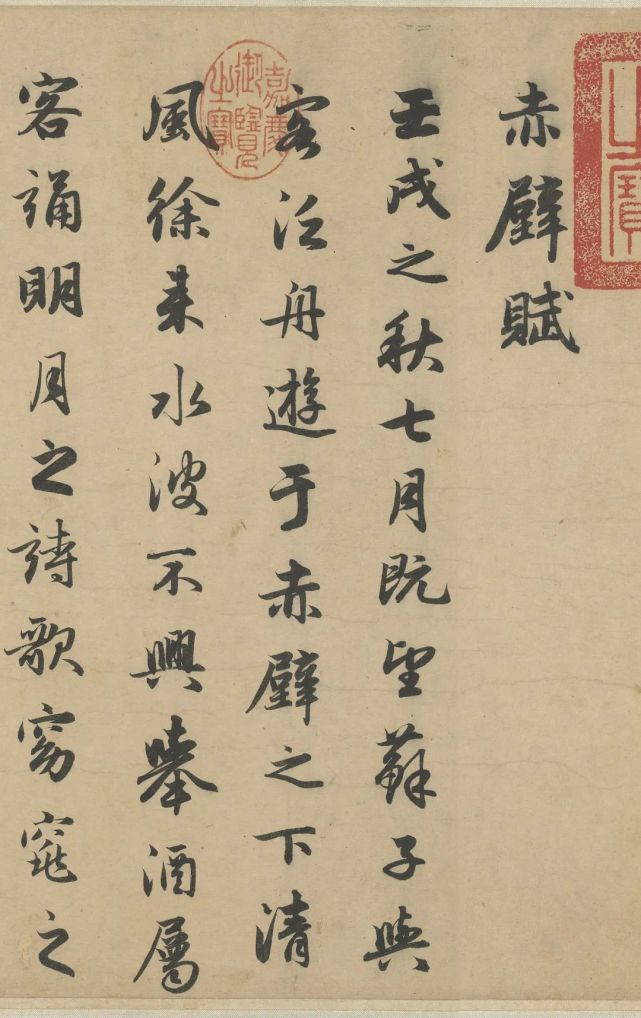 赤壁賦
壬戌之秋七月既望蘇子與
客泛舟遊于赤壁之下清
風徐來水波不興舉酒屬
客誦明月之詩歌窈窕之
嘉慶御覽之寶
之寶